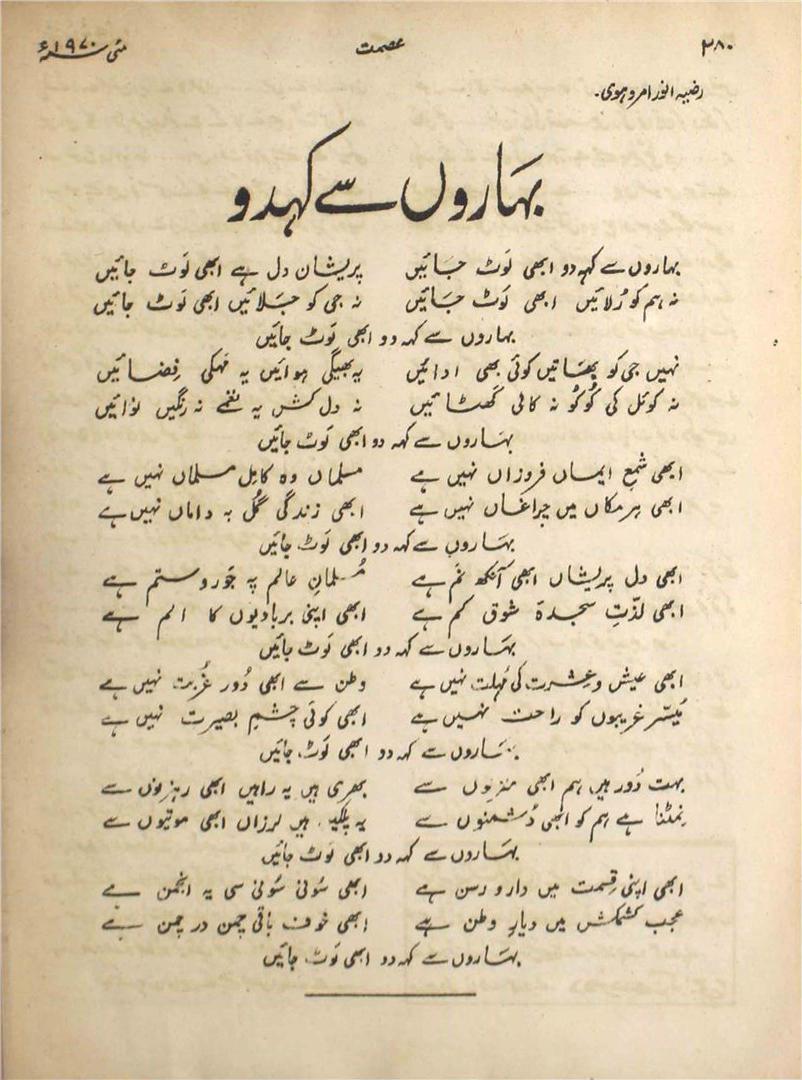 ۲۸۰ عصمت مئی سنہ ۱۹۷۰ء
رضیہ انور امروہوی۔
بہاروں سے کہدو
بہاروں سے کہہ دو ابھی لَوٹ جائیں پریشان دل ہے ابھی لَوٹ جائیں
نہ ہم کو رُلائیں ابھی لَوٹ جائیں نہ جی کو جَلائیں ابھی لوٹ جائیں
بہاروں سے کہہ دو ابھی لَوٹ جائیں
نہیں جی کو بھَاتیں کوئی بھی ادائیں یہ بھیگی ہوائیں یہ مَہکی فِضائیں
نہ کوئل کی کُوکُو نہ کالی گھَٹائیں نہ دل کش یہ نغمے نہ رنگیں نوائیں
بہاروں سے کہہ دو ابھی لَوٹ جائیں
ابھی شمعِ ایماں فروزاں نہیں ہے مسلماں وہ کامِل مسلماں نہیں ہے
ابھی ہر مکاں میں چراغاں نہیں ہے ابھی زندگی گُل بہ داماں نہیں ہے
بہاروں سے کہہ دو ابھی لَوٹ جائیں
ابھی دل پریشاں ابھی آنکھ نَم ہے مُسلمانِ عالم پہ جَور و ستم ہے
ابھی لذّتِ سجدۂ شوق کم ہے ابھی اپنی بربادیوں کا الم ہے
بہاروں سے کہہ دو ابھی لَوٹ جائیں
ابھی عیش و عِشرت کی مُہلت نہیں ہے وطن سے ابھی دُور غُربت نہیں ہے
مُیسّر غریبوں کو راحت نہیں ہے ابھی کوئی چشمِ بصیرت نہیں ہے
بہاروں سے کہہ دو ابھی لَوٹ جائیں
بہت دُور ہیں ہم ابھی منزلوں سے بھری ہیں یہ راہیں ابھی رہزنوں سے
نِمٹنا ہے ہم کو ابھی دُشمنوں سے یہ پلکیں ہیں لرزاں ابھی موتیوں سے
بہاروں سے کہہ دو ابھی لَوٹ جائیں
ابھی اپنی قِسمت میں دار و رسن ہے ابھی سُونی سُونی سی یہ انجمن ہے
عجب کشمکش میں دیارِ وطن ہے ابھی خوف باقی چمن در چمن ہے
بہاروں سے کہہ دو ابھی لَوٹ جائیں